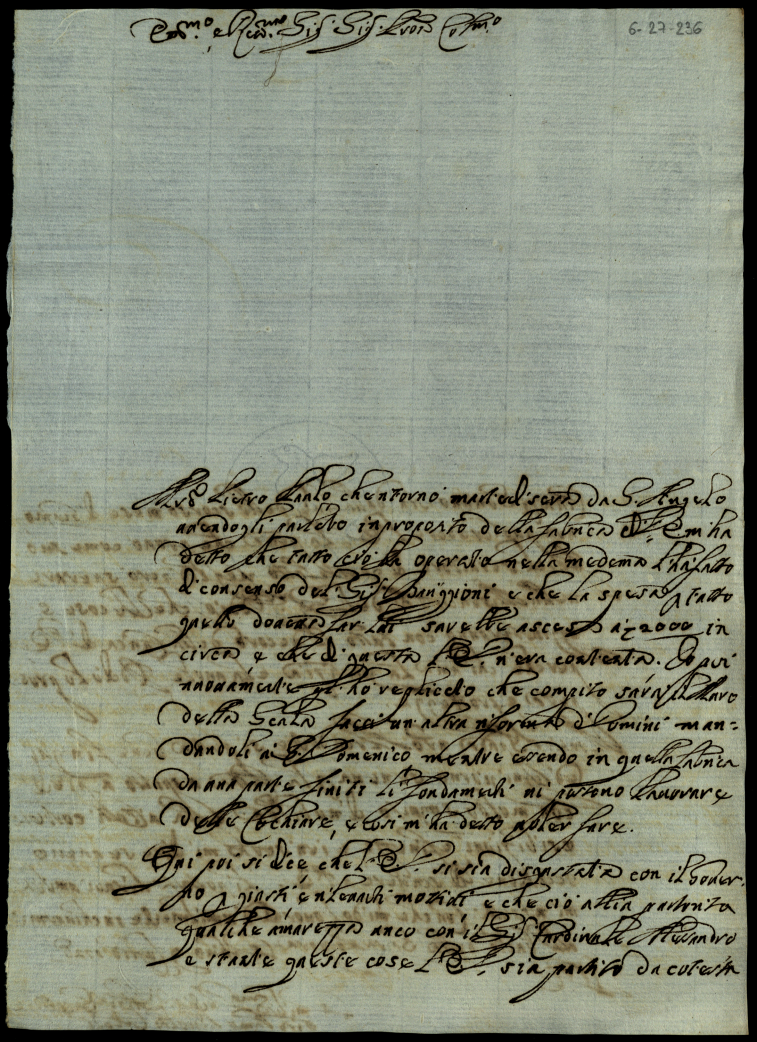 Em.mo e R.mo Sig.r Sig.r Pron Col.mo
6-27-236
Pietro Paolo che tornò martedi sera da S. Angelo
havendogli parlato in proposito della fabrica mi ha
detto che tutto ciò ha operato nella medema l'ha fatto
di consenso del Sig.r e che la spesa p tutto
quello doveva far sarebbe ascesa a 2000 in
circa e che di questa V.E. n'era contenta. Io poi
nuovamente gl'ho replicato che compito sarà il Muro
della Scala facci un altra riforma d'homini man-
dandoli a S. Domenico mentre essendo in quella fabrica
da una parte finiti li fondamenti vi possono lavorare
delle, e così m'ha detto voler fare.
Qui poi si dice che V.E. si sia disgustata con il Gover-
no p giusti e rilevanti motivi e che ciò abbia partorito
qualche amarezza anco con il Sig.r Cardinale Alesandro
e stante queste cose V.E. sia partito da cotesta